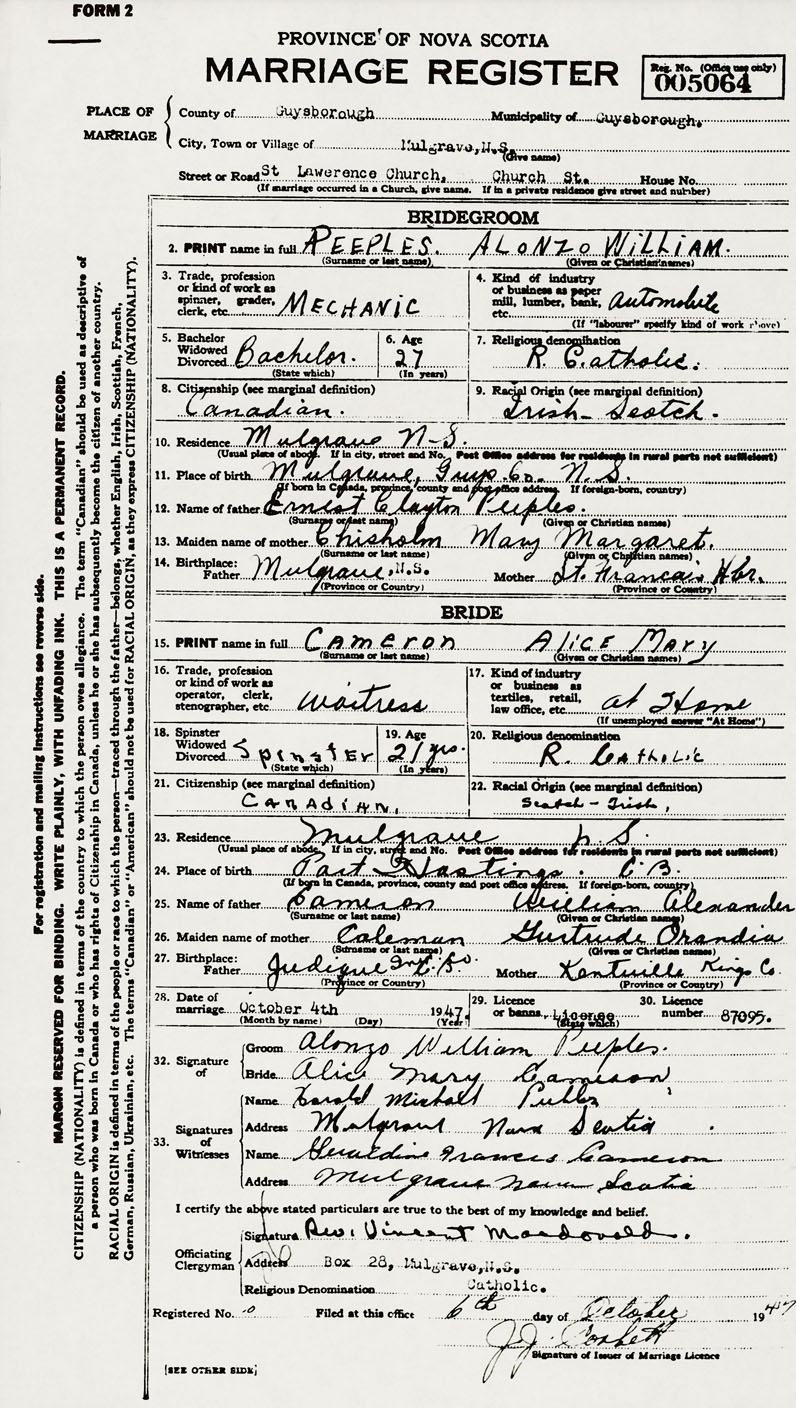 FORM 2
PROVINCE OF NOVA SCOTIA
MARRIAGE REGISTER
Reg. No. (Office use only)
005064
PLACE OF MARRIAGE
County of Guysborough Municipality of Guysborough.
City, Town or Village of Mulgrave, N.S.
(Give name)
Street or Road St Lawerence Church. Church St. House No.
(If marriage occurred in a Church, give name. If in a private residence give street and number)
BRIDEGROOM
2. PRINT name in full PEEPLES. ALONZO WILLIAM.
(Surname or last name) (Given or Christian names)
3. Trade, profession or kind of work as spinner, grader, clerk, etc. MECHANIC
4. Kind of industry or business as paper mill, lumber, bank, etc. Automobile
(If "labourer" specify kind of work above)
5. Bachelor Widowed Divorced Bachelor.
(State which)
6. Age 27
(In years)
7. Religious denomination R. Catholic.
8. Citizenship (see marginal definition) Canadian.
9. Racial Origin (see marginal definition) Irish-Scotch.
10. Residence Mulgrave N-S.
(Usual place of abode. If in city, street and No. Post Office address for residents in rural parts not sufficient)
11. Place of birth Mulgrave, Guys Co. N.S.
(If born in Canada, province, county and post office address. If foreign-born, country)
12. Name of father Ernest Clayton Peeples.
(Surname or last name) (Given or Christian names)
13. Maiden name of mother Chisholm Mary Margaret.
(Surname or last name) (Given or Christian names)
14. Birthplace: Father Mulgrave, N.S. Mother St. Francais Hbr.
(Province or Country) (Province or Country)
BRIDE
15. PRINT name in full Cameron Alice Mary
(Surname or last name) (Given or Christian names)
16. Trade, profession or kind of work as operator, clerk, stenographer, etc. Waitress
17. Kind of industry or business as textiles, retail, law office, etc. at Home
(If unemployed answer "At Home")
18. Spinster Widowed Divorced Spinster
(State which)
19. Age 21 yrs.
(In years)
20. Religious denomination R. Catholic
21. Citizenship (see marginal definition) Canadian.
22. Racial Origin (see marginal definition) Scotch-Irish,
23. Residence Mulgrave N.S.
(Usual place of abode. If in city, street and No. Post Office address for residents in rural parts not sufficient)
24. Place of birth Port Hastings. C.B.
(If born in Canada, province, county and post office address. If foreign-born, country)
25. Name of father Cameron William Alexander
(Surname or last name) (Given or Christian names)
26. Maiden name of mother Coleman Gertrude Orandia
(Surname or last name) (Given or Christian names)
27. Birthplace: Father Judique Inv. Co. C.B. Mother Kentville Kings Co.
(Province or Country) (Province or Country)
28. Date of marriage October 4th 1947.
(Month by name) (Day) (Year)
29. Licence or banns License
(State which)
30. Licence number 87095.
32. Signature of
Groom Alonzo William Peeples.
Bride Alice Mary Cameron
33. Signatures of Witnesses
Name Harold Michael
Address Mulgrave Nova Scotia
Name Geraldine Frances Cameron
Address Mulgrave Nova Scotia
I certify the above stated particulars are true to the best of my knowledge and belief.
Officiating Clergyman
Signature Rev. Vincent Macdonald.
Address Box 28, Mulgrave, N.S.
Religious Denomination Catholic.
Registered No. Filed at this office 6th day of October 1947
J.J. Corbett
Signature of Issuer of Marriage Licence
[SEE OTHER SIDE]
For registration and mailing instructions see reverse side.
MARGIN RESERVED FOR BINDING. WRITE PLAINLY, WITH UNFADING INK. THIS IS A PERMANENT RECORD.
CITIZENSHIP (NATIONALITY) is defined in terms of the country to which the person owes allegiance. The term "Canadian" should be used as descriptive of
a person who was born in Canada or who has rights of Citizenship in Canada, unless he or she has subsequently become the citizen of another country.
RACIAL ORIGIN is defined in terms of the people or race to which the person—traced through the father—belongs, whether English, Irish, Scottish, French,
German, Russian, Ukrainian, etc. The terms "Canadian" or "American" should not be used for RACIAL ORIGIN, as they express CITIZENSHIP (NATIONALITY).